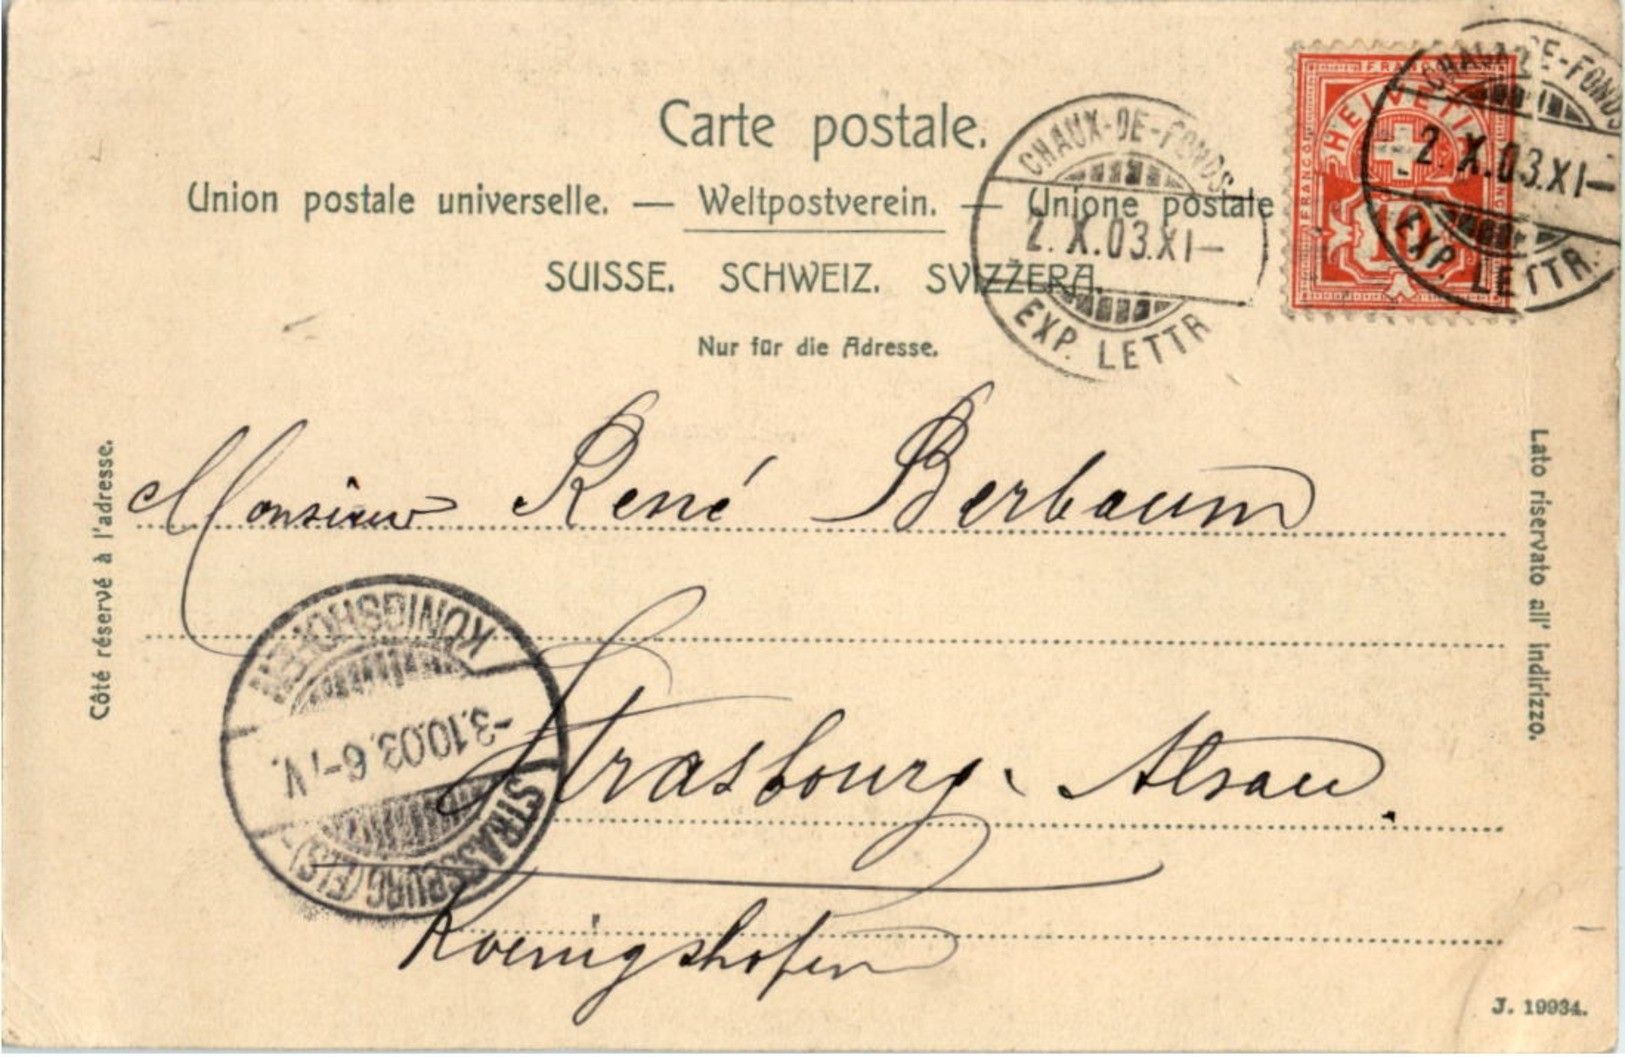 Carte postale.
Union postale universelle. — Weltpostverein. — Unione postale
SUISSE. SCHWEIZ. SVIZZERA.
Nur für die Adresse.
CHAUX-DE-FONDS
2. X.03.XI—
EXP. LETTR.
FRANCO
FRANCO
HELVETIA
10
CHAUX-DE-FONDS
2. X.03.XI—
EXP. LETTR.
Côté réservé à l'adresse.
Lato riservato all' indirizzo.
Monsieur René Berbaum
Strasbourg. Alsace.
Koenigshofen
STRASSBURG (ELS)
-3.10.03. 6-7V.
KÖNIGSHOFEN
J. 19934.